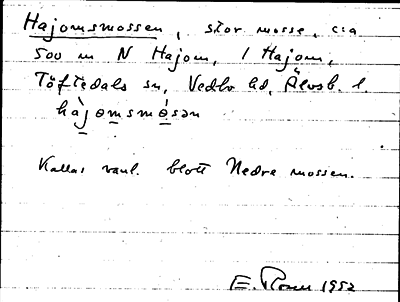 Hajomsmossen, stor mosse, c:a
500 m N Hajom, i Hajom,
Töftedals sn, Vedbo hd, Älvsb. l.
hàjomsmósən
Kallas vanl. blott Nedre mossen.
E. 1952